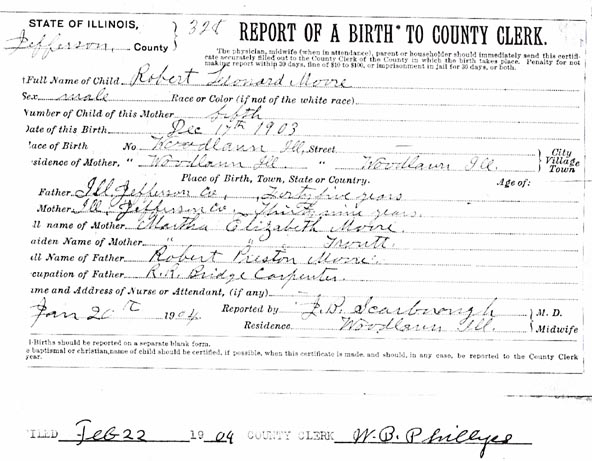 STATE OF ILLINOIS,
Jefferson, County
328
REPORT OF A BIRTH* TO COUNTY CLERK.
The physician, midwife (when in attendance), parent or householder should immediately send this certifi-
cate accurately filled out to the County Clerk of the County in which the birth takes place. Penalty for not
making report within 30 days, fine of $10 to $100, or imprisonment in jail for 30 days, or both.
†Full Name of Child Robert Leonard Moore
Sex male Race or Color (if not of the white race)
Number of Child of this Mother fifth
Date of this Birth Dec 17th 1903
Place of Birth No Woodlawn Ill, Street City
sidence of Mother, " Woodlawn Ill. " Woodlawn Ill. Village Town
Place of Birth, Town, State or Country. Age of:
Father Ill. Jefferson Co. Forty five years
Mother Ill. Jefferson Co. Thirty nine years.
ll name of Mother Martha Elizabeth Moore
aiden Name of Mother " " Troutt
ull Name of Father Robert Preston Moore
cupation of Father R.R. Bridge Carpenter
ume and Address of Nurse or Attendant, (if any)
Jan 20th 1904 Reported by J.W. Scarborough M. D.
Residence Woodlawn Ill. Midwife
l-Births should be reported on a separate blank form.
e baptismal or christian, name of child should be certified, if possible, when this certificate is made, and should, in any case, be reported to the County Clerk
year.
FILED Feb 22 1904 COUNTY CLERK W. B. Phillips